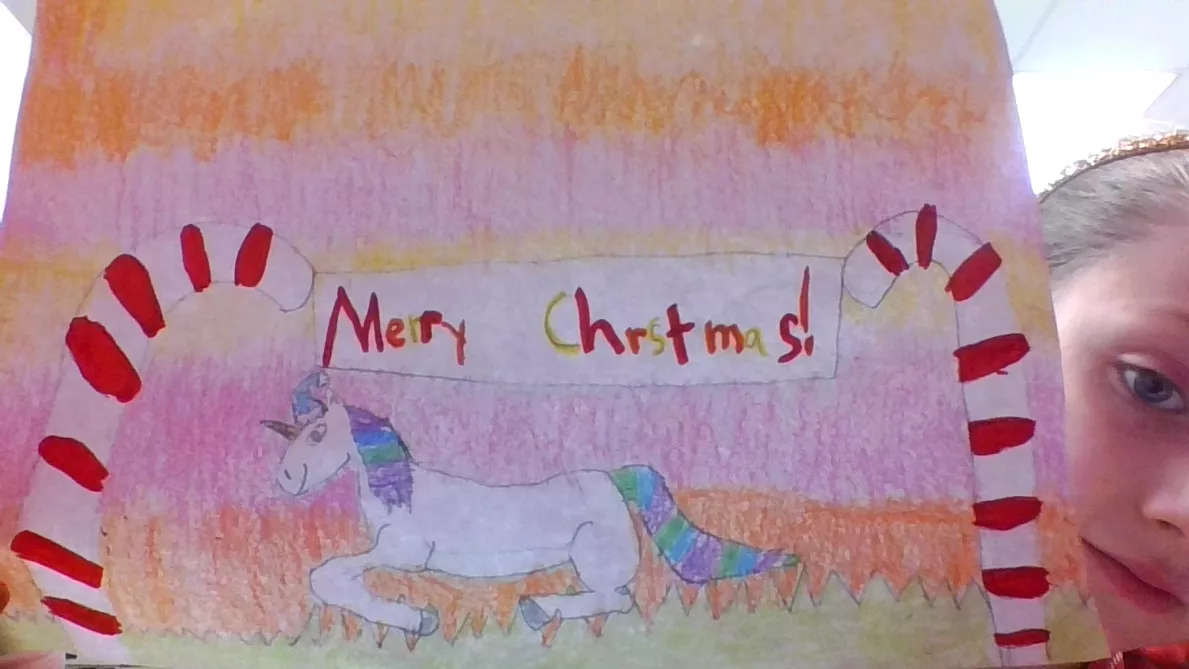 Merry Chrstmas!